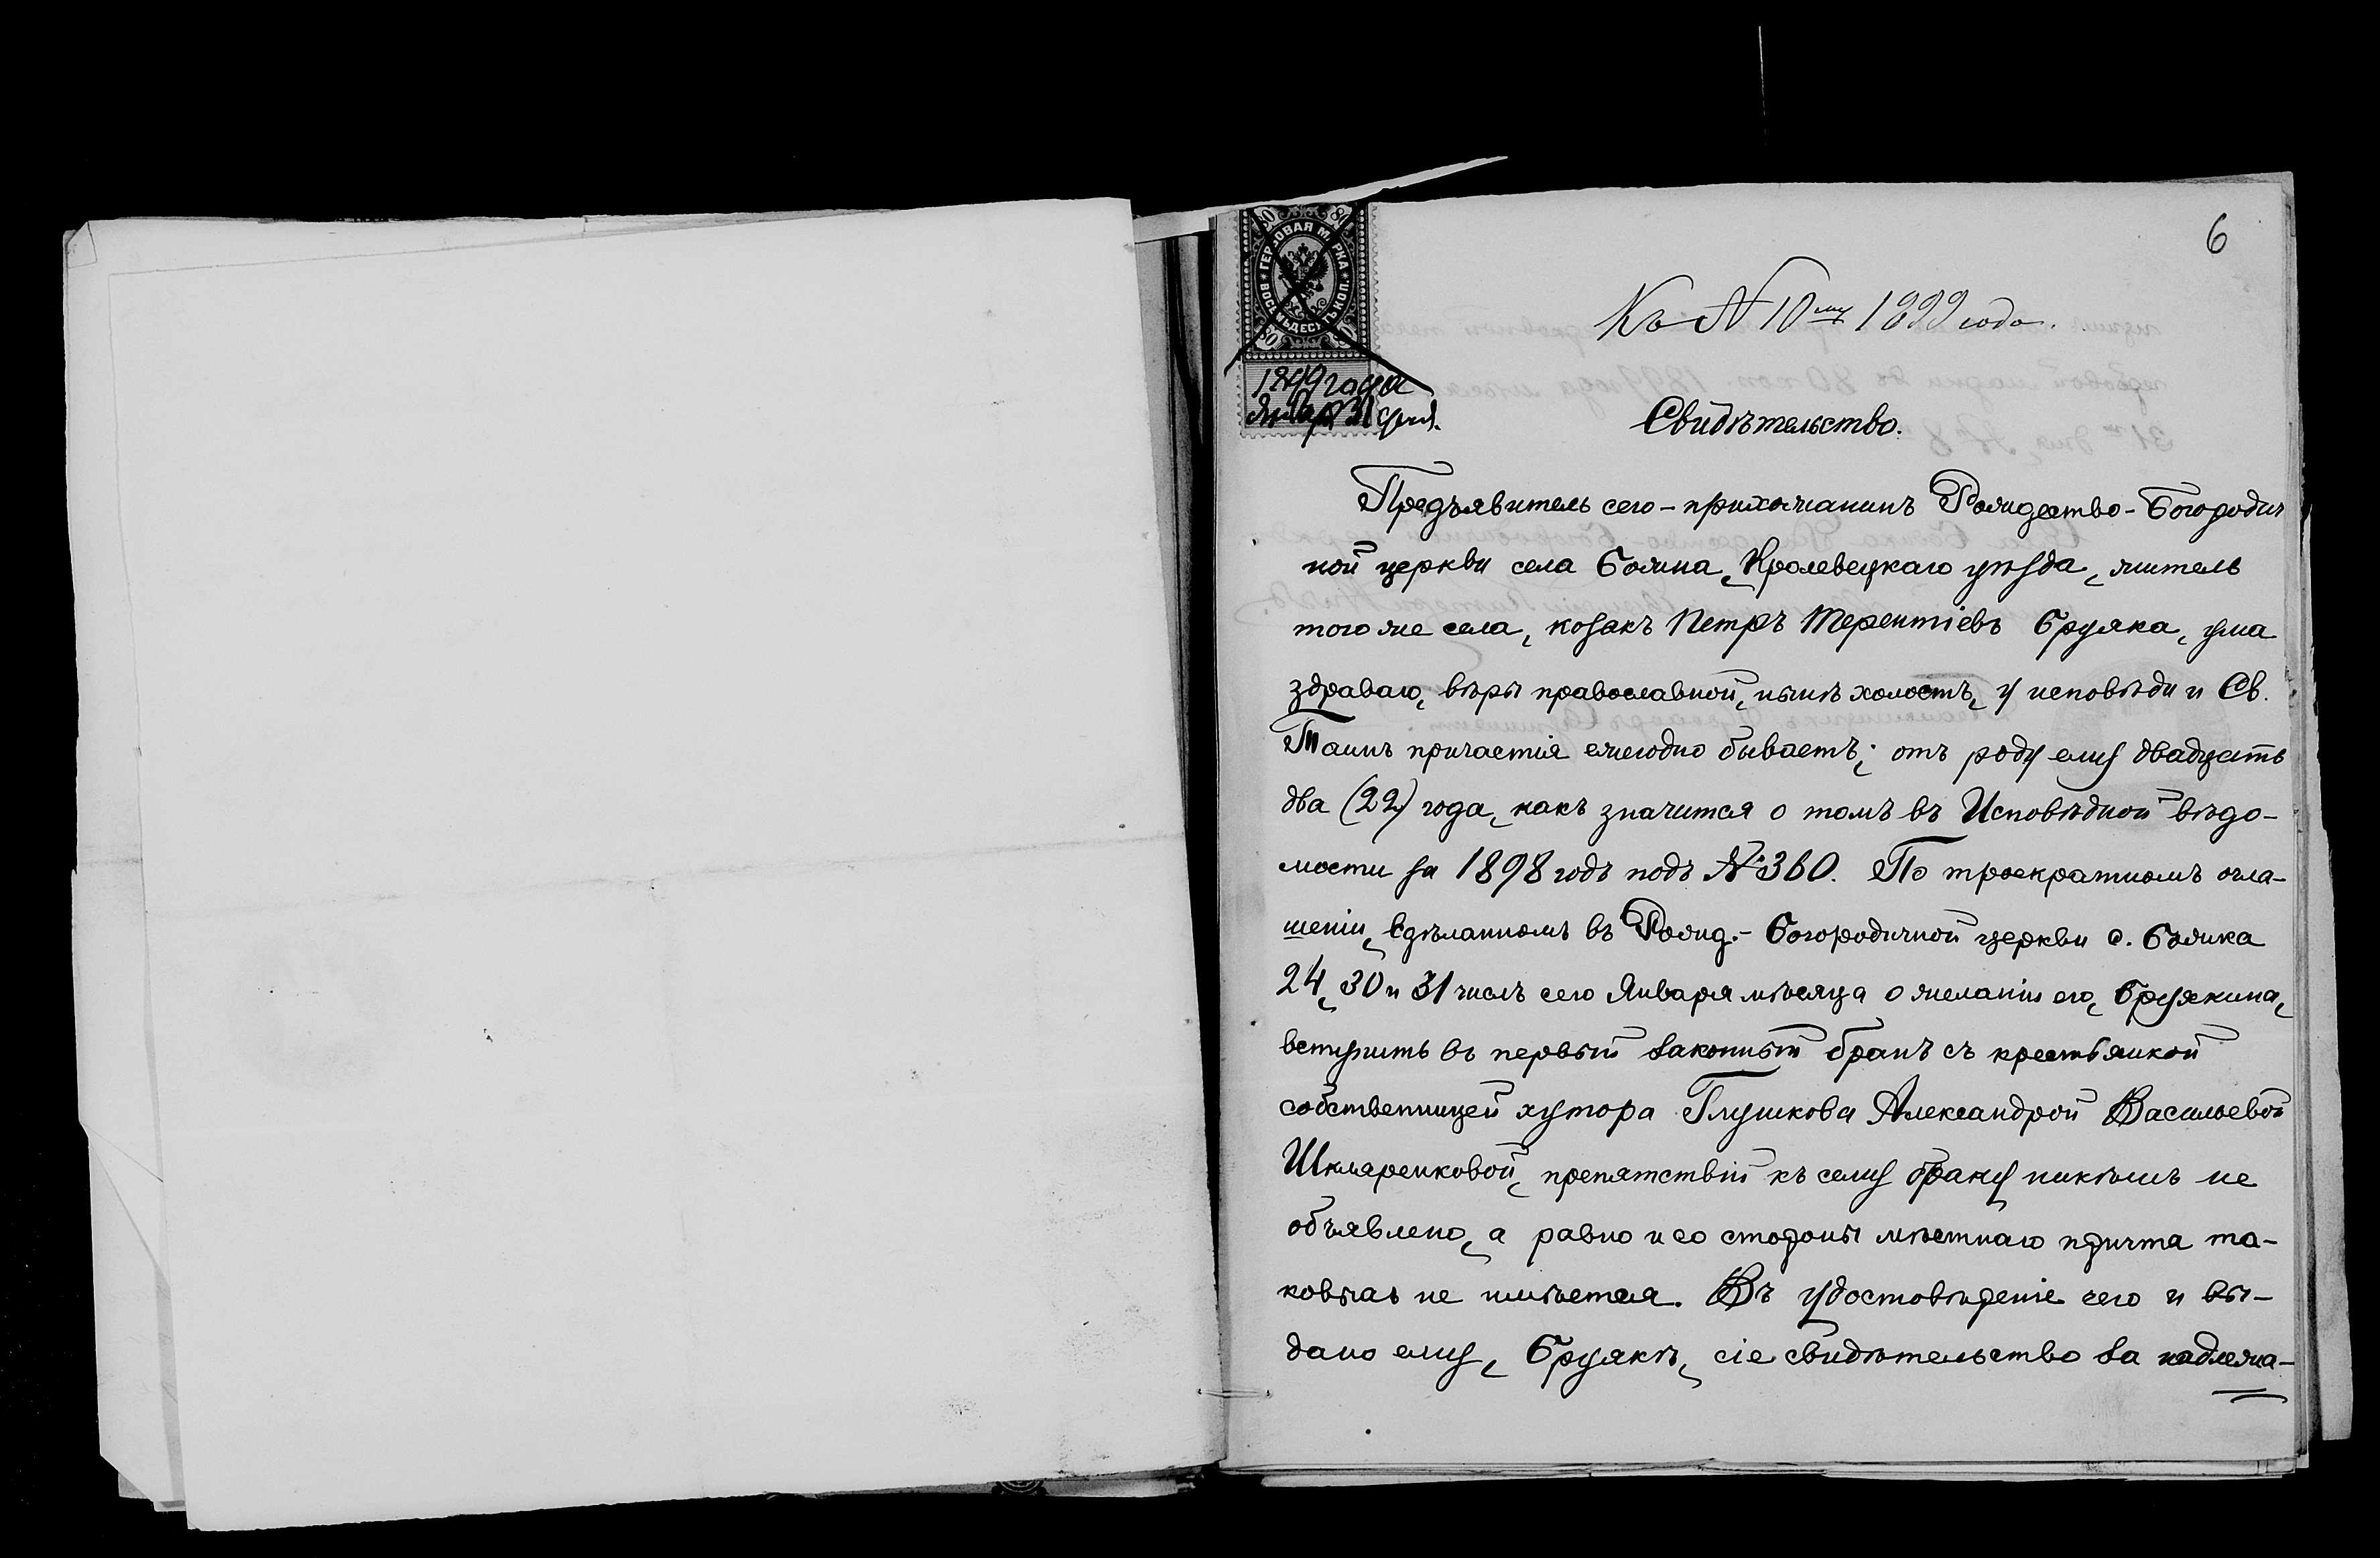 6
Къ № 10му 1899 года.
ГЕРБОВАЯ МАРКА
ВОСЕМЬДЕСЯТЪ КОП.
80 80
80 80
1899 года
Января 31 дня.
Свидѣтельство.
Предъявитель сего – прихожанинъ Рождество-Богородич
ной церкви села Божка, Кролевецкаго уѣзда, житель
того же села, козакъ Петръ Терентіевъ Бруяка, ума
здраваго, вѣры православной, нынѣ холостъ, у исповѣди и Св.
Таинъ причастія ежегодно бываетъ; отъ роду ему двадцать
два (22) года, какъ значится о томъ въ Исповѣдной вѣдо-
мости за 1898 годъ подъ № 360. По троекратномъ огла-
шеніи, сдѣланномъ въ Рожд.- Богородичной церкви с. Божка
24, 30 и 31 числъ сего Января мѣсяца о желаніи его, Бруякина,
вступить въ первый законный бракъ съ крестьянкой
собственницей хутора Глушкова Александрой Васильевой
Шкляренковой, препятствій къ сему браку никѣмъ не
объявлено, а равно и со стороны мѣстнаго причта та-
ковыхъ не имѣется. Въ удостовѣреніе чего и вы-
дано ему, Бруякѣ, сіе свидѣтельство за надлежа-